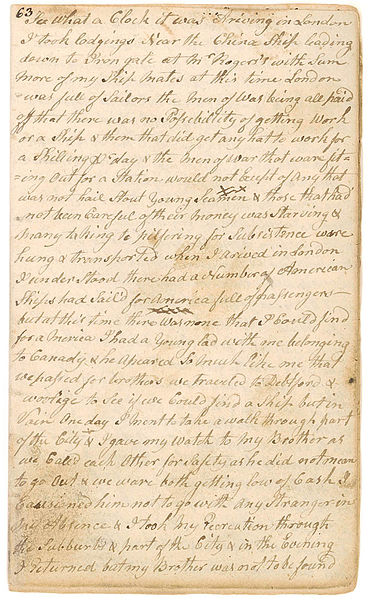 63
See What a Clock it was Ariving in London
I took lodgings Near the China Ship leading
down to Irongate at Mr Rogers with Sum
more of my Ship mates at this time London
was full of Sailors the Men of War being all paid
off that there was no Posebility of getting Work
or a Ship & them that did get any hat to work for
a Shilling P day & the Men of War that ware fit=
=ing Out for a Station would not Except of Any that
was not hail Stout Young Seamen & those that had
not been Careful of their money was Starving &
many taking to pilfering for Subsistence ware
hung & transported when I arived in London
I understood there had a Number of American
Ships had Sail'd for America full of passengers
but at this time there was none that I Could find
for America I had a Young lad with me belonging
to Canady & he Apeared So much like me that
we passed for brothers we traveled to Debford &
woolage to See if we Could find a Ship but in
Vain One day I went to take a walk through part
of the City & I gave my Watch to my Brother as
we Calld each Other for Safety as he did not mean
to go Out & we ware both getting low of Cash I
Causioned him not to go with any Stranger in
my Absince & I took my Recreation through
the Subburbs & part of the City & in the Evining
I Returned but my Brother was not to be found